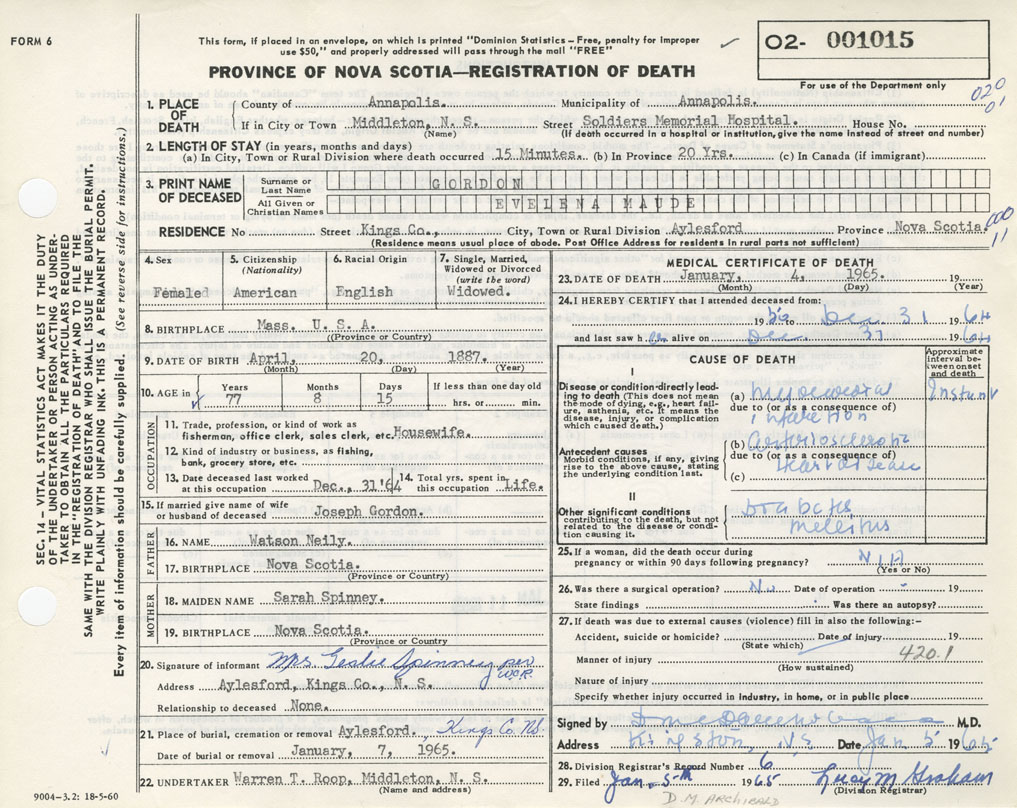 FORM 6
This form, if placed in an envelope, on which is printed "Dominion Statistics - Free, penalty for improper
use $50," and properly addressed will pass through the mail "FREE"
PROVINCE OF NOVA SCOTIA—REGISTRATION OF DEATH
02- 001015
For use of the Department only
020
01
1. PLACE OF DEATH
County of Annapolis. Municipality of Annapolis.
If in City or Town Middleton, N. S. Street Soldiers Memorial Hospital. House No.
(Name) (If death occurred in a hospital or institution, give the name instead of street and number)
2. LENGTH OF STAY (in years, months and days)
(a) In City, Town or Rural Division where death occurred 15 Minutes. (b) In Province 20 Yrs. (c) In Canada (if immigrant)
3. PRINT NAME OF DECEASED
Surname or Last Name GORDON
All Given or Christian Names EVELENA MAUDE
000
11
RESIDENCE No Street Kings Co., City, Town or Rural Division Aylesford Province Nova Scotia.
(Residence means usual place of abode. Post Office Address for residents in rural parts not sufficient)
4. Sex
Female
5. Citizenship
(Nationality)
American
6. Racial Origin
English
7. Single, Married, Widowed or Divorced
(write the word)
Widowed.
8. BIRTHPLACE Mass. U. S. A.
(Province or Country)
9. DATE OF BIRTH April, 20, 1887.
(Month) (Day) (Year)
10. AGE in
Years 77
Months 8
Days 15
If less than one day old
hrs. or min.
OCCUPATION
11. Trade, profession, or kind of work as
fisherman, office clerk, sales clerk, etc. Housewife.
12. Kind of industry or business, as fishing,
bank, grocery store, etc.
13. Date deceased last worked
at this occupation Dec., 31'64
14. Total yrs. spent in
this occupation Life.
15. If married give name of wife
or husband of deceased Joseph Gordon.
FATHER
16. NAME Watson Neily.
17. BIRTHPLACE Nova Scotia.
(Province or Country)
MOTHER
18. MAIDEN NAME Sarah Spinney.
19. BIRTHPLACE Nova Scotia.
(Province or Country
20. Signature of informant Mrs Leslie Spinney per
W.O.R.
Address Aylesford, Kings Co., N. S.
Relationship to deceased None.
21. Place of burial, cremation or removal Aylesford. Kings Co. N.S.
Date of burial or removal January, 7, 1965.
22. UNDERTAKER Warren T. Roop, Middleton, N. S.
(Name and address)
MEDICAL CERTIFICATE OF DEATH
23. DATE OF DEATH January, 4, 1965. 19
(Month) (Day) (Year)
24. I HEREBY CERTIFY that I attended deceased from:
19 to Dec 31 1964
and last saw h er alive on Dec. 31 1964
CAUSE OF DEATH
Approximate interval between onset and death
I
Disease or condition directly leading to death (This does not mean the mode of dying, e.g., heart failure, asthenia, etc. It means the disease, injury, or complication which caused death.)
(a) Myocardial
due to (or as a consequence of)
infarction
Instant
Antecedent causes
Morbid conditions, if any, giving rise to the above cause, stating the underlying condition last.
(b) Arteriosclerotic
due to (or as a consequence of)
heart disease
(c)
II
Other significant conditions
contributing to the death, but not related to the disease or condition causing it.
Diabetes
Mellitus
25. If a woman, did the death occur during
pregnancy or within 90 days following pregnancy? N/A
(Yes or No)
26. Was there a surgical operation? No Date of operation - 19
State findings Was there an autopsy?
27. If death was due to external causes (violence) fill in also the following:-
Accident, suicide or homicide? Date of injury 19
(State which)
420.1
Manner of injury
(How sustained)
Nature of injury
Specify whether injury occurred in industry, in home, or in public place
Signed by M.D.
Address Kingston, N.S. Date Jan 5 1965
28. Division Registrar's Record Number 6
29. Filed Jan. 5th 1965 Lucy M Graham
(Division Registrar)
D.M. ARCHIBALD
9004-3.2: 18-5-60
SEC. 14 - VITAL STATISTICS ACT MAKES IT THE DUTY
OF THE UNDERTAKER OR PERSON ACTING AS UNDER-
TAKER TO OBTAIN ALL THE PARTICULARS REQUIRED
IN THE "REGISTRATION OF DEATH" AND TO FILE THE
SAME WITH THE DIVISION REGISTRAR WHO SHALL ISSUE THE BURIAL PERMIT.
WRITE PLAINLY WITH UNFADING INK. THIS IS A PERMANENT RECORD.
Every item of information should be carefully supplied. (See reverse side for instructions.)